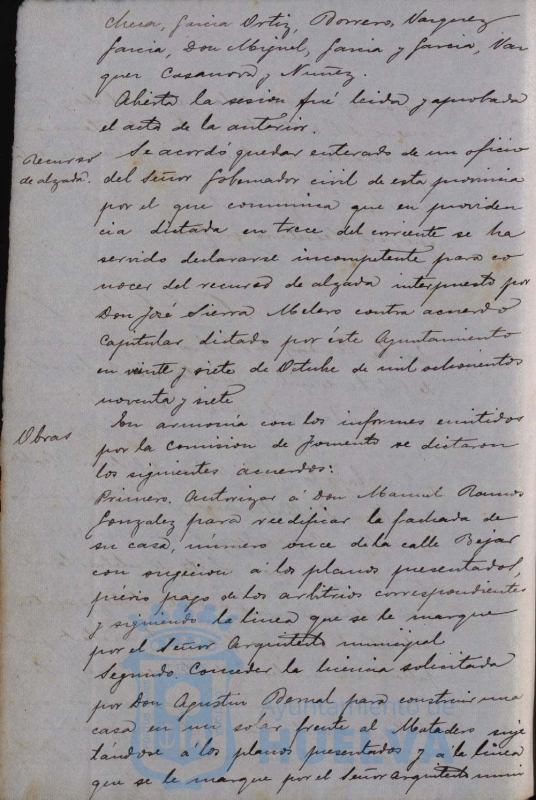 Checa, Garcia Ortiz, Borrero, Vazquez
Garcia, Don Miguel, Garcia y Garcia, Vaz
quez Casanova y Nuñez.
Abierta la sesion fué leida y aprobada
el acta de la anterior.
Recurso
de alzada.
Se acordó quedar enterado de un oficio
del Señor Gobernador civil de esta provincia
por el que comunica que en providen
cia dictada en trece del corriente se ha
servido declararse incompetente para co
nocer del recurso de alzada interpuesto por
Don José Sierra Melero contra acuerdo
capitular dictado por éste Ayuntamiento
en veinte y siete de Octubre de mil ochocientos
noventa y siete
Obras
En armonía con los informes emitidos
por la Comision de Fomento se dictaron
los siguientes acuerdos:
Primero. Autorizar á Don Manuel Ramos
Gonzalez para reedificar la fachada de
su casa, número once de la calle Bejar
con sugecion á los planos presentados,
previo pago de los arbitrios correspondientes
y siguiendo la linea que se le marque
por el Señor Arquitecto municipal
Segundo. Conceder la licencia solicitada
por Don Agustin Bernal para construir una
casa en un solar frente al Matadero suje
tándose á los planos presentados y á la linea
que se le marque por el Señor Arquitecto muni
Ayuntamiento de
HUELVA